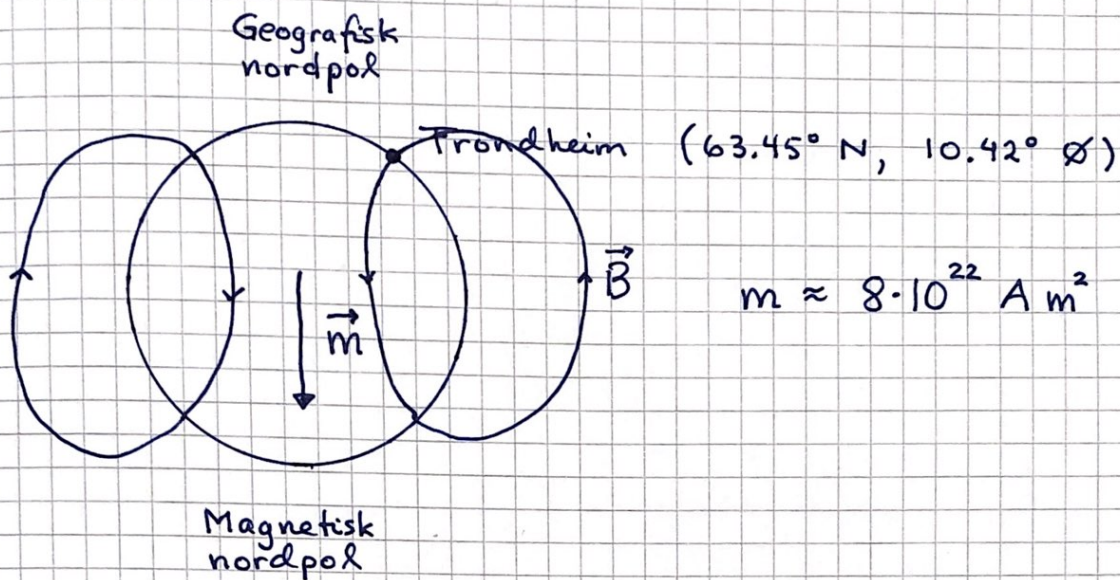 Geografisk
nordpol
Trondheim (63.45° N, 10.42° Ø)
$\vec{B}$
m ≈ 8·10²² A m²
$\vec{m}$
Magnetisk
nordpol